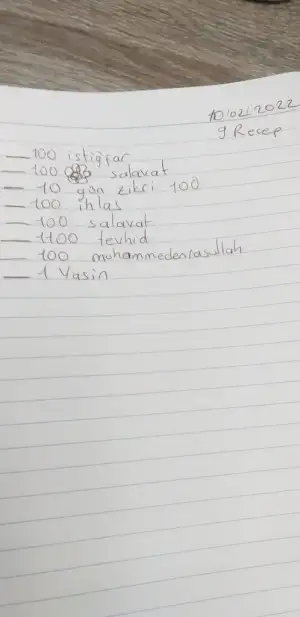 10/02/2022
9 Recep
100 istiğfar
100 salavat
10 gün zikri 100
100 ihlas
100 salavat
1100 tevhid
100 muhammedenrasullah
1 Yasin